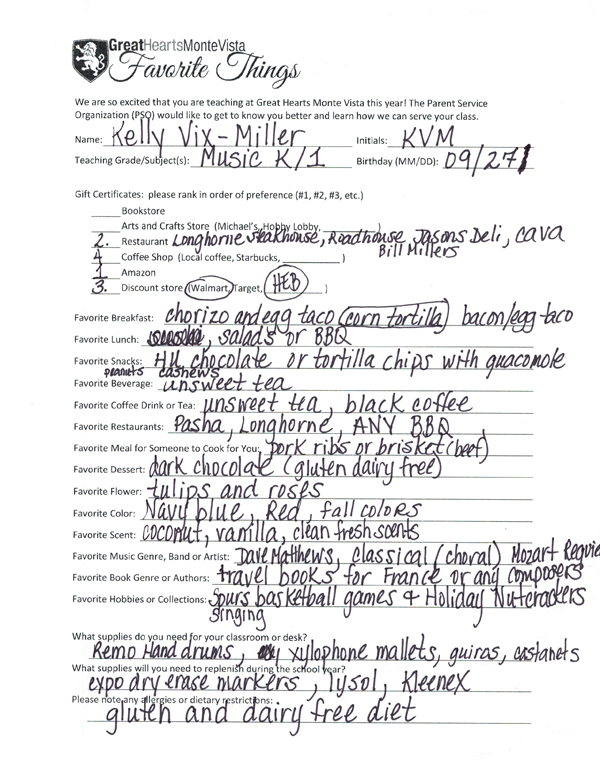 GreatHeartsMonteVista
Favorite Things
We are so excited that you are teaching at Great Hearts Monte Vista this year! The Parent Service
Organization (PSO) would like to get to know you better and learn how we can serve your class.
Name: Kelly Vix-Miller Initials: KVM
Teaching Grade/Subject(s): Music K/1 Birthday (MM/DD): 09/27
Gift Certificates: please rank in order of preference (#1, #2, #3, etc.)
______ Bookstore
______ Arts and Crafts Store (Michael's, Hobby Lobby, ____________)
2. Restaurant Longhorne steakhouse, Roadhouse, Jasons Deli, CAVA
Bill Millers
4 Coffee Shop (Local coffee, Starbucks, ____________)
1 Amazon
3. Discount store (Walmart, Target, HEB)
Favorite Breakfast: chorizo and egg taco (corn tortilla) bacon/egg taco
Favorite Lunch: , salads or BBQ
Favorite Snacks: HU chocolate or tortilla chips with guacomole
peanuts cashews
Favorite Beverage: unsweet tea
Favorite Coffee Drink or Tea: unsweet tea, black coffee
Favorite Restaurants: Pasha, Longhorne, ANY BBQ
Favorite Meal for Someone to Cook for You: pork ribs or brisket (beef)
Favorite Dessert: dark chocolate (gluten dairy free)
Favorite Flower: tulips and roses
Favorite Color: Navy blue, Red, fall colors
Favorite Scent: coconut, vanilla, clean fresh scents
Favorite Music Genre, Band or Artist: Dave Matthews, classical (choral) Mozart Requie
Favorite Book Genre or Authors: travel books for France or any composers
Favorite Hobbies or Collections: Spurs basketball games & Holiday Nutcrackers
singing
What supplies do you need for your classroom or desk?
Remo Hand drums, xylophone mallets, guiros, castanets
What supplies will you need to replenish during the school year?
expo dry erase markers, lysol, Kleenex
Please note any allergies or dietary restrictions:
gluten and dairy free diet